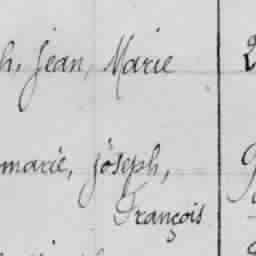 h, Jean, Marie
marie, joseph,
François